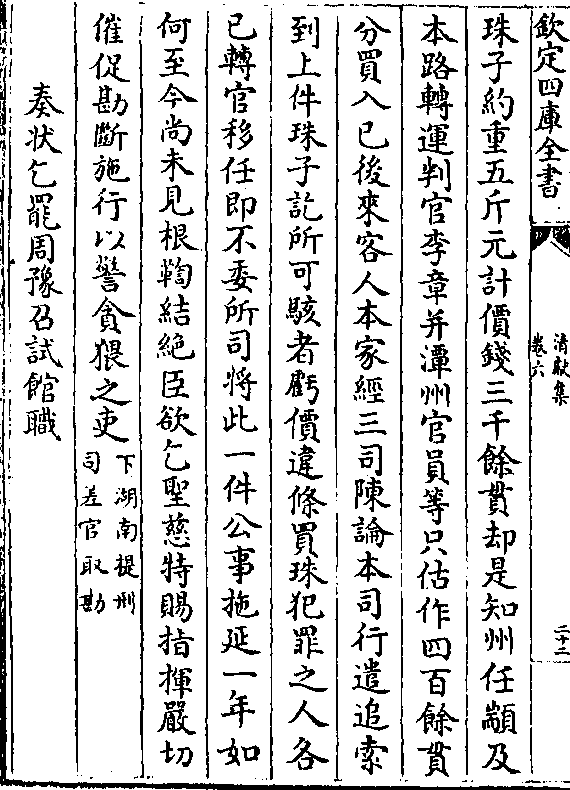 欽定四庫全書
清獻集
卷六
二十二
珠子約重五斤元計價錢三千餘貫却是知州任顓及
本路轉運判官李章并潭州官員等只估作四百餘貫
分買入已後來客人本家經三司陳論本司行遣追索
到上件珠子訖所可駭者虧價違條買珠犯罪之人各
已轉官移任即不委所司將此一件公事拖延一年如
何至今尚未見根鞫結絶臣欲乞聖慈特賜指揮嚴切
催促勘斷施行以警貪猥之吏
下湖南提刑
司差官取勘
奏狀乞罷周豫召試館職